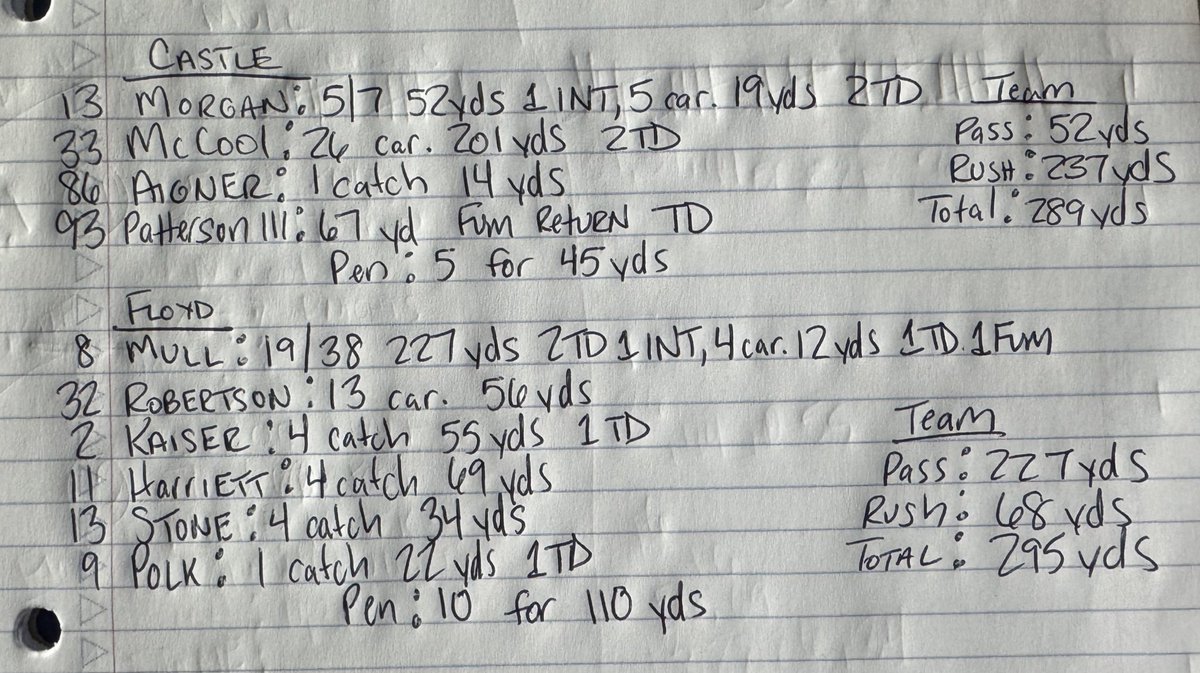 CASTLE
13 MORGAN: 5/7 52yds 1 INT, 5 car. 19yds 2TD
33 McCool: 26 car. 201 yds 2TD
86 AIGNER: 1 catch 14 yds
93 Patterson III: 67 yd Fum Return TD
Pen: 5 for 45 yds
Team
Pass: 52yds
Rush: 237yds
Total: 289yds
FLOYD
8 MULL: 19/38 227yds 2TD 1 INT, 4 car. 12yds 1TD. 1 Fum
32 ROBERTSON: 13 car. 56yds
2 KAISER: 4 catch 55 yds 1 TD
11 HARRIETT: 4 catch 69 yds
13 STONE: 4 catch 34 yds
9 POLK: 1 catch 22 yds 1TD
Pen: 10 for 110 yds
Team
Pass: 227yds
Rush: 68 yds
TOTAL: 295 yds